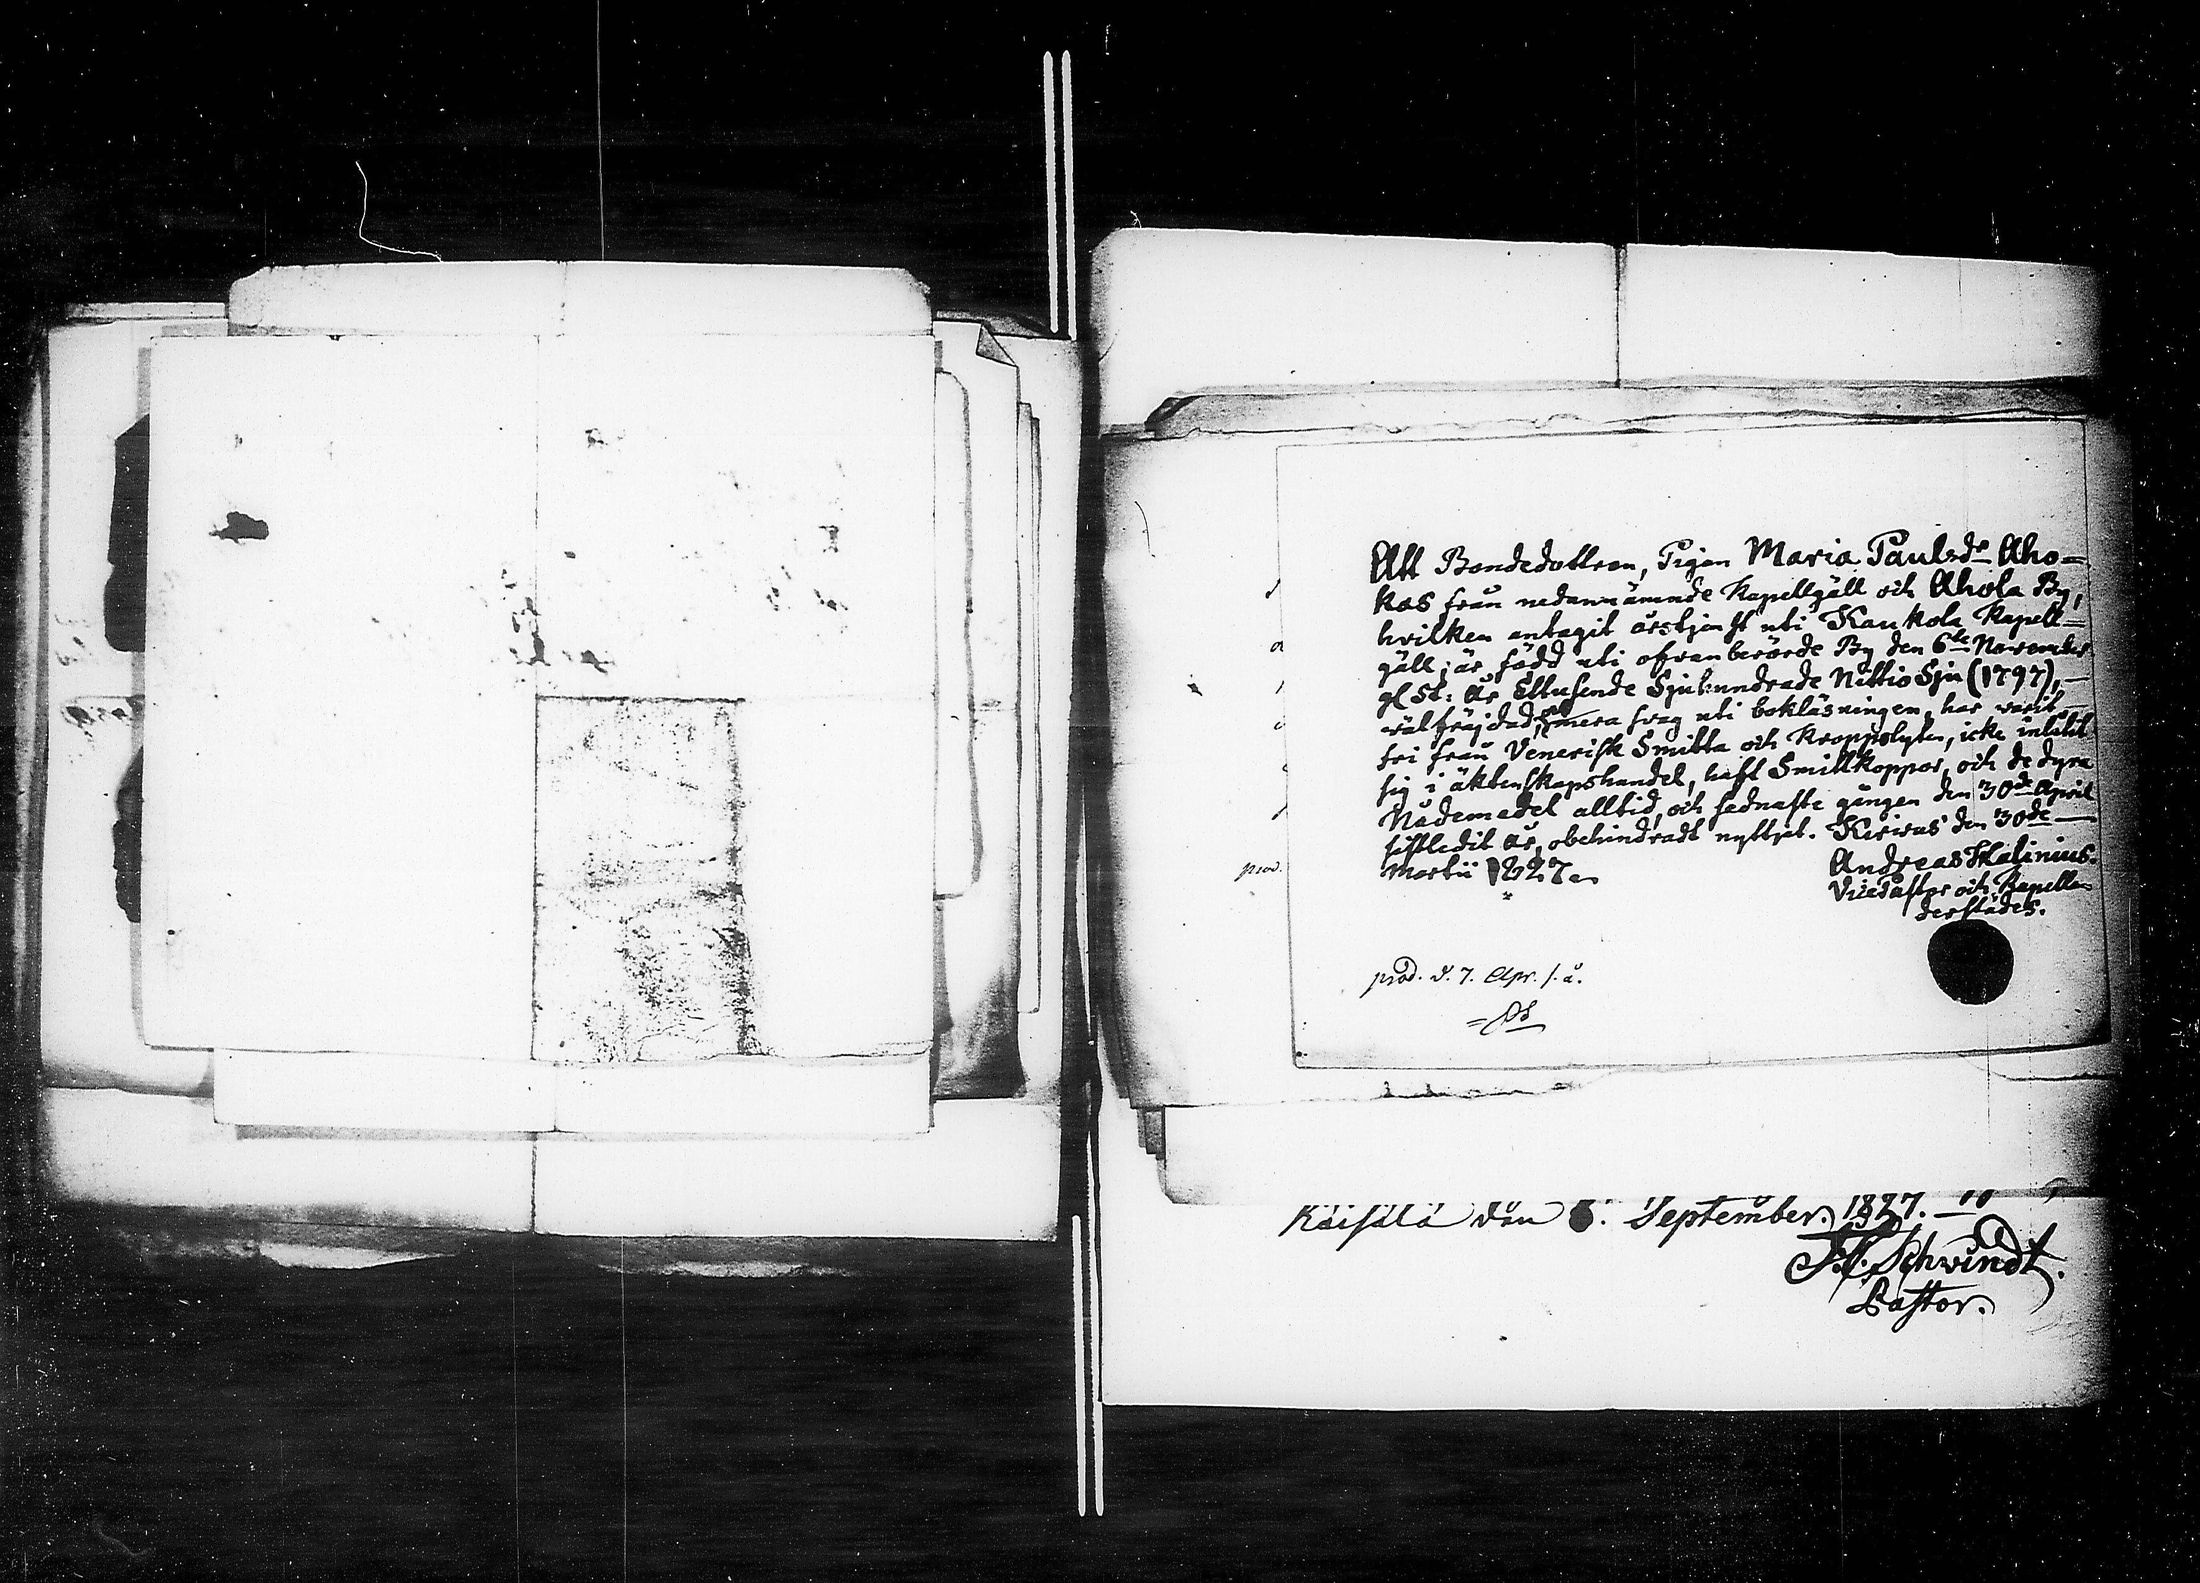 Att Bondedottren, Pigan Maria Paulsdr Aho=
kas från nedannämnde Kapellgäll och Ahola By,
hvilken antagit årstjenst uti Kaukola Kapell=
gäll; är född uti ofvanberörde By den 6te November
gl St: år Ettusende Sjuhundrade Nittio Sju (1797), —
välfräjdad, mera svag uti bokläsningen, har varit
fri från Venerisk Smitta och Kroppslyten, icke inlåtit
sig i äktenskapshandel, haft Smittkoppor, och de dyra
Nådemedel alltid, och sednaste gången den 30de April
sistledit år, obehindradt nyttjat. Kirivus den 30de —
Martii 1827.
Andreas Halinius.
Vice Pastor och Kapellan
derstädes.
prod.
prod. d. 7. Apr. s. å.
Käisälä dän 6. September. 1827.
Schvindt.
Pastor.